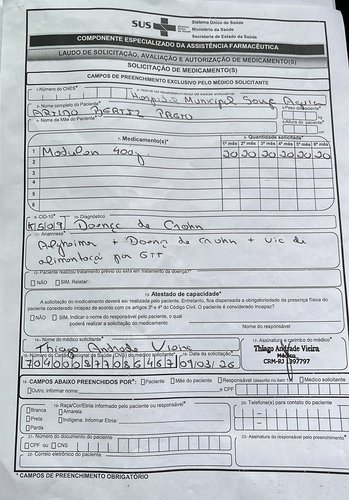 SUS
Sistema Único de Saúde
Ministério da Saúde
Secretaria de Estado da Saúde
COMPONENTE ESPECIALIZADO DA ASSISTÊNCIA FARMACÊUTICA
LAUDO DE SOLICITAÇÃO, AVALIAÇÃO E AUTORIZAÇÃO DE MEDICAMENTO(S)
SOLICITAÇÃO DE MEDICAMENTO(S)
CAMPOS DE PREENCHIMENTO EXCLUSIVO PELO MÉDICO SOLICITANTE
1-Número do CNES*
Hospital Municipal
3- Nome completo do Paciente*
5-Peso do paciente*
kg
4- Nome da Mãe do Paciente*
6-Altura do paciente*
cm
7- Medicamento(s)*
8- Quantidade solicitada*
1º mês 2º mês 3º mês 4º mês 5º mês 6º mês
1 Modulon 400g 20 20 20 20 20 20
2
3
4
5
6
9- CID-10* 10- Diagnóstico
K509 Doença de Crohn
11- Anamnese*
Alzheimer + Doença de Crohn + via de
alimentação por GTT
12- Paciente realizou tratamento prévio ou está em tratamento da doença?*
NÃO SIM. Relatar:
13- Atestado de capacidade*
A solicitação do medicamento deverá ser realizada pelo paciente. Entretanto, fica dispensada a obrigatoriedade da presença física do
paciente considerado incapaz de acordo com os artigos 3º e 4º do Código Civil. O paciente é considerado incapaz?
NÃO SIM. Indicar o nome do responsável pelo paciente, o qual
poderá realizar a solicitação do medicamento
Nome do responsável
14- Nome do médico solicitante*
17- Assinatura e carimbo do médico*
Thiago Andrade Vieira
Thiago Andrade Vieira
Médico
15- Número do Cartão Nacional de Saúde (CNS) do médico solicitante*
16- Data da solicitação*
09/03/26
18- CAMPOS ABAIXO PREENCHIDOS POR*: Paciente Mãe do paciente Responsável (descrito no item 13) Médico solicitante
Outro, informar nome: e CPF
19- Raça/Cor/Etnia informado pelo paciente ou responsável*
20- Telefone(s) para contato do paciente
Branca Amarela
Preta Indígena. Informar Etnia:
Parda
21- Número do documento do paciente
CPF ou CNS
23- Assinatura do responsável pelo preenchimento*
22- Correio eletrônico do paciente
* CAMPOS DE PREENCHIMENTO OBRIGATÓRIO